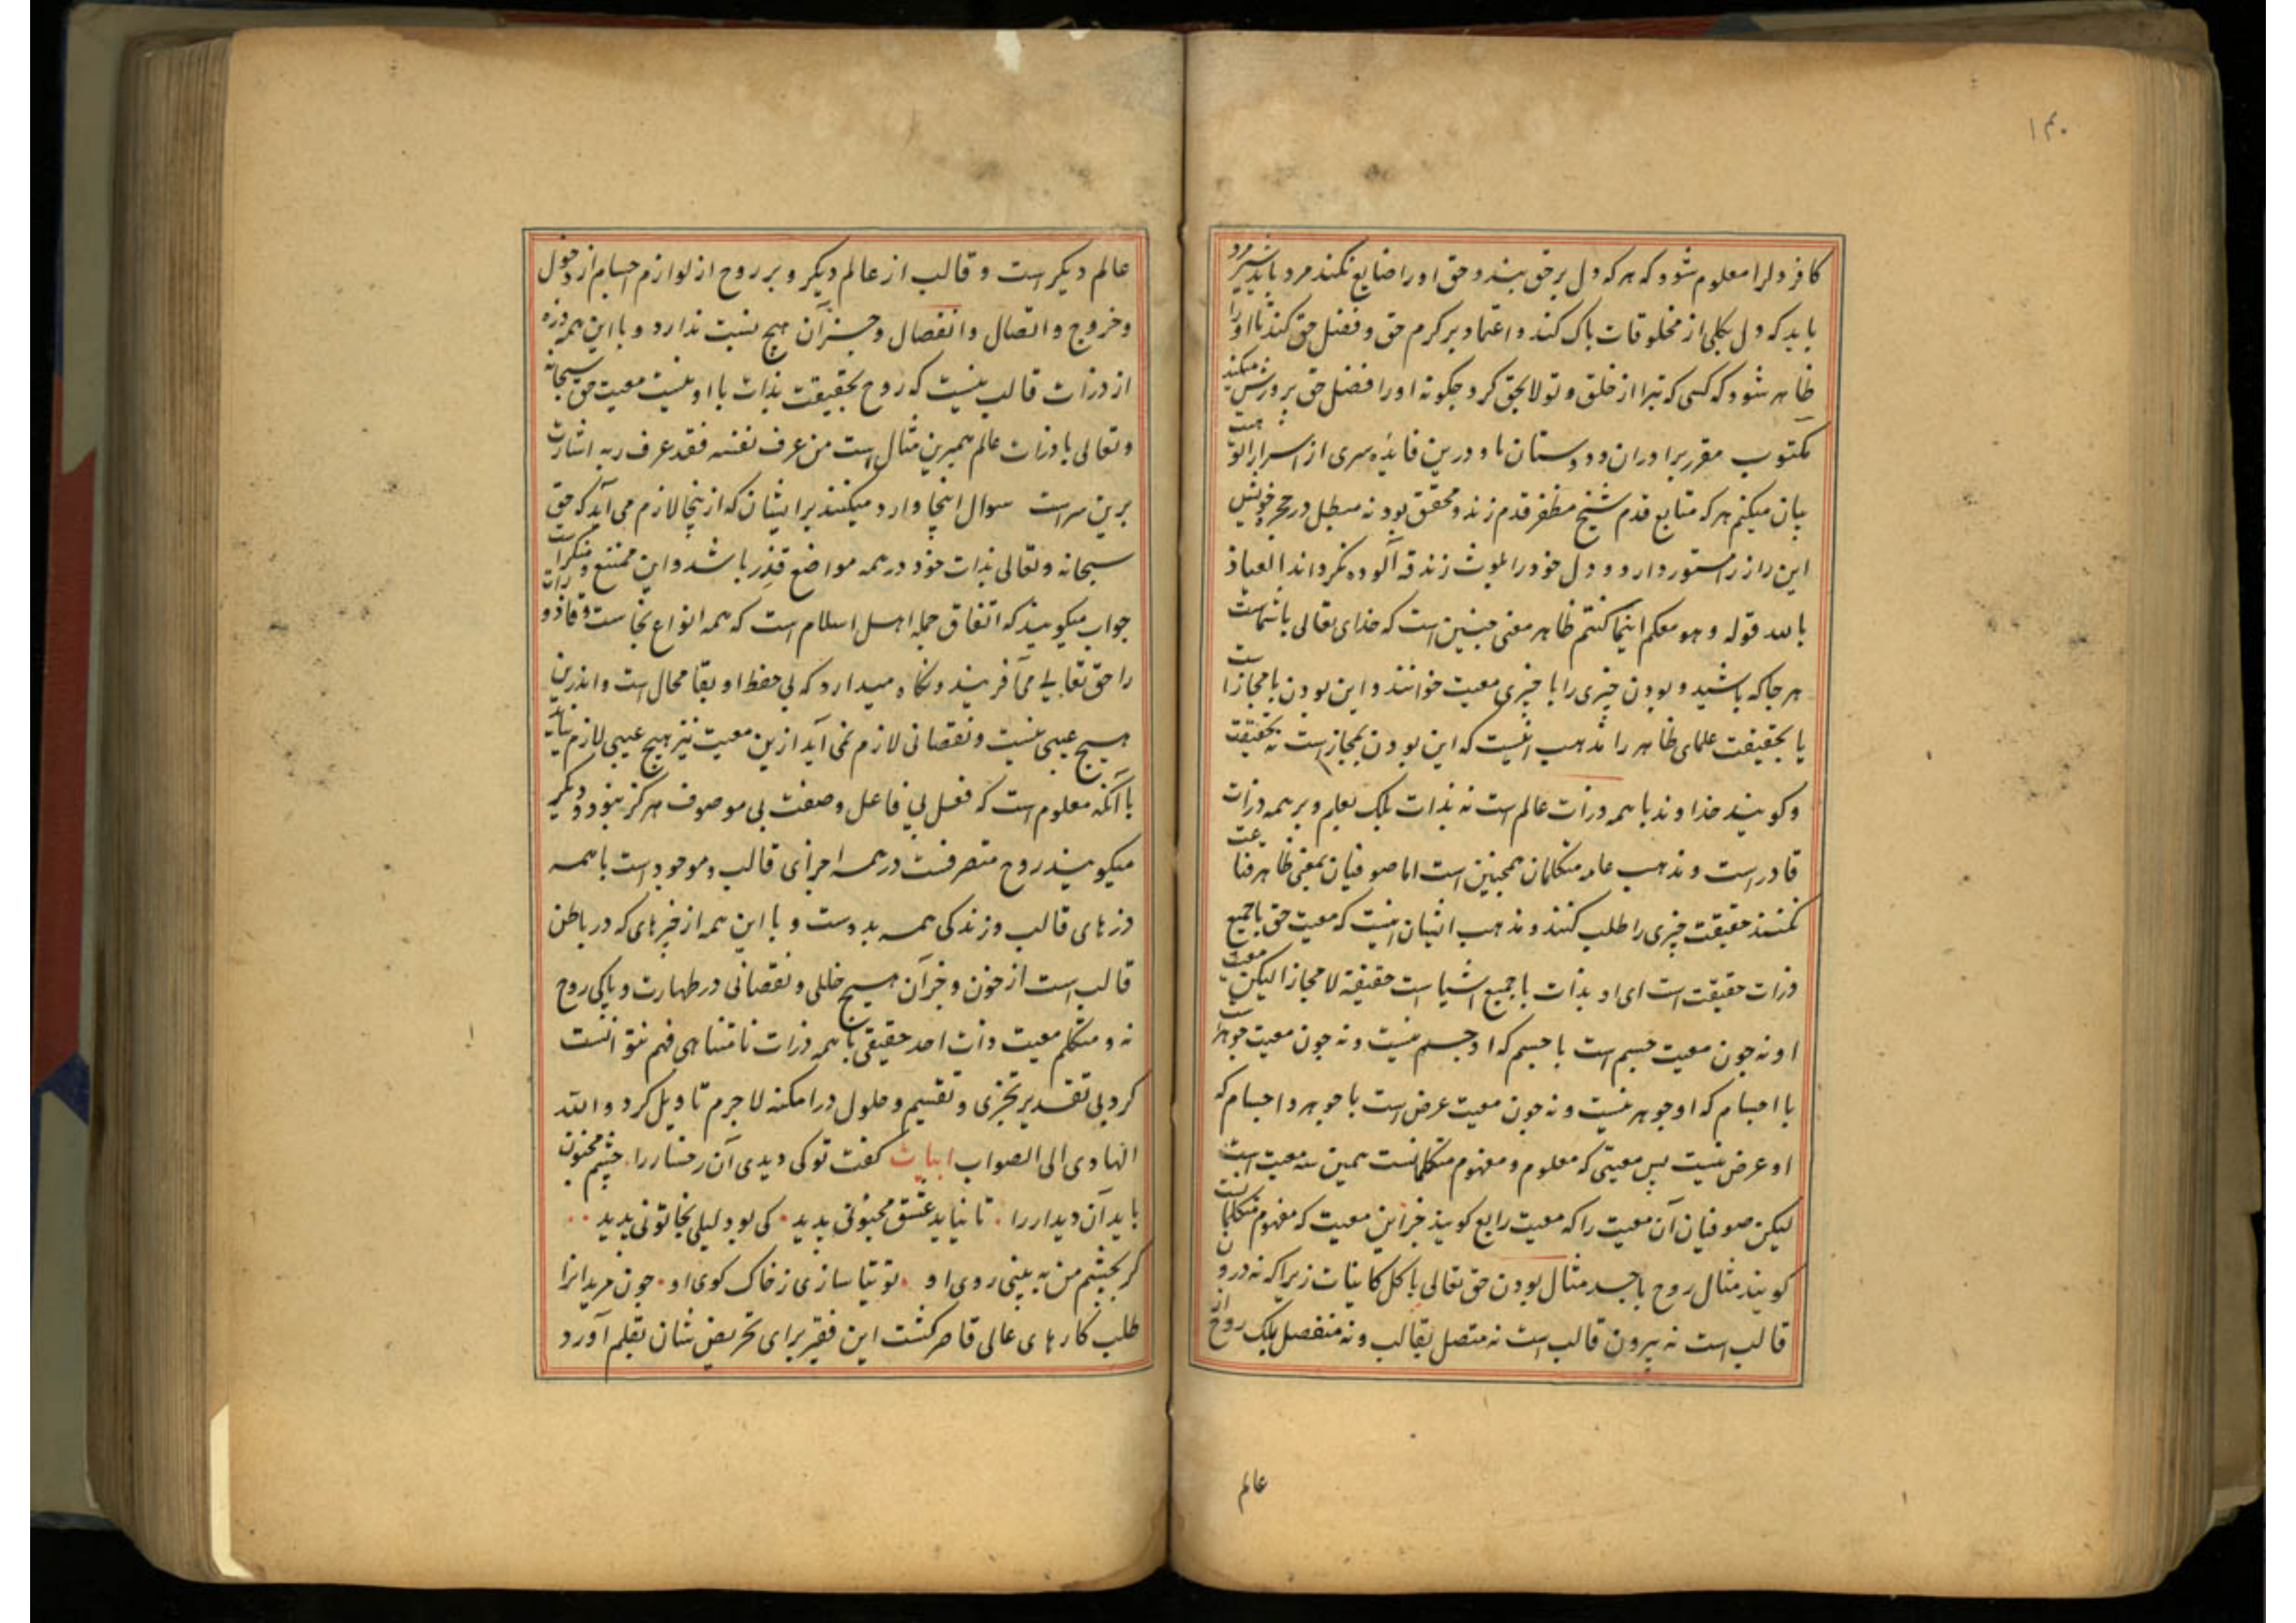 ۱۴۰
کافر دلرا معلوم شود که هر که دل بر حق بندد حق او را ضایع نکند مرد باید شیر مرد
باید که دل بکلی از مخلوقات پاک کند و اعتماد بر کرم حق و فضل حق کند تا او را
ظاهر شود که کسی که تبرا از خلق و تولا بحق کرد چگونه او را فضل حق پرورش میکند
مکتوب مقرر برادران و دوستان با و درین فایده سری از اسرار الو
بیان میکنم هر که متابع قدم شیخ مظفر قدم زند و محقق بود نه مبطل در حجره خویش
این راز را مستور دارد و دل خود را بلوث زندقه آلوده نگرداند العیاذ
بالله قوله و هو معکم اینما کنتم ظاهر معنی چنین است که خدای تعالی با شماست
هر جا که باشید و بودن چیزی را با چیزی معیت خوانند و این بودن یا مجازا ست
یا بحقیقت علمای ظاهر را مذهب اینست که این بودن بمجاز است نه بحقیقت
و گویند خداوند با همه ذرات عالم است نه بذات بلک بعلم و بر همه ذرات
قادر است و مذهب عامه متکلمان همچنین است اما صوفیان بمعنی ظاهر قناعت
نکنند حقیقت چیزی را طلب کنند و مذهب ایشان اینست که معیت حق با جمیع
ذرات حقیقت است ای او بذات با جمیع اشیا است حقیقة لا مجازا لیکن معیت
او نه چون معیت جسم است با جسم که او جسم نیست و نه چون معیت جوهر است
با اجسام که او جوهر نیست و نه چون معیت عرض است با جوهر و اجسام که
او عرض نیست پس معیتی که معلوم و مفهوم متکلمانست همین سه معیت است
لیکن صوفیان آن معیت را که معیت رابع گویند جز این معیت که مفهوم متکلمانست
گویند مثال روح با جسد مثال بودن حق تعالی با کل کاینات زیرا که نه درون
قالب است نه بیرون قالب است نه متصل بقالب و نه منفصل بلک روح از
عالم
عالم دیگر است و قالب از عالم دیگر و بر روح از لوازم اجسام از دخول
و خروج و اتصال و انفصال و جز آن هیچ نسبت ندارد و با این همه ذره
از ذرات قالب نیست که روح بحقیقت بذات با او نیست معیت حق سبحانه
و تعالی با ذرات عالم همبرین مثال است من عرف نفسه فقد عرف ربه اشارت
برین سر است سوال اینجا وارد میکنند بر ایشان که ازینجا لازم می آید که حق
سبحانه و تعالی بذات خود در همه مواضع قذر باشد و این ممتنع و منکر است
جواب میگویند که اتفاق جمله اهل اسلام است که همه انواع نجاست و قاذورات
را حق تعالی می آفریند و نگاه میدارد که بی حفظ او بقا محال است و اندرین
هیچ عیبی نیست و نقصانی لازم نمی آید ازین معیت نیز هیچ عیبی لازم نیاید
با آنکه معلوم است که فعل بی فاعل و صفت بی موصوف هرگز نبود و دیگر
میگویند روح متصرفست در همه اجزای قالب و موجود است با همه
ذرهای قالب و زندگی همه بدوست و با این همه از چیزهای که در باطن
قالب است از خون و جز آن هیچ خللی و نقصانی در طهارت و پاکی روح
نه و متکلم معیت ذات احد حقیقی با همه ذرات نامتناهی فهم نتوانست
کرد بی تقدیر تجزی و تقسیم و حلول در امکنه لاجرم تاویل کرد و الله
الهادی الی الصواب ابیات گفت تو کی دیدی آن رخسار را . چشم مجنون
باید آن دیدار را . تا نیاید عشق مجنونی پدید . کی بود لیلی بخاتونی پدید . .
گر بچشم من به بینی روی او . توتیا سازی ز خاک کوی او . چون مریدانرا
طلب کارهای عالی قاصر گشت این فقیر برای تحریض شان بقلم آورد